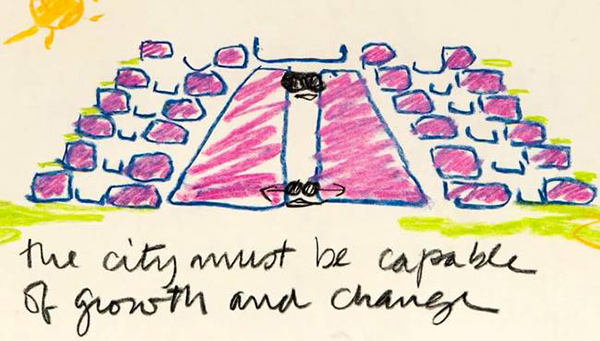 the city must be capable
of growth and change